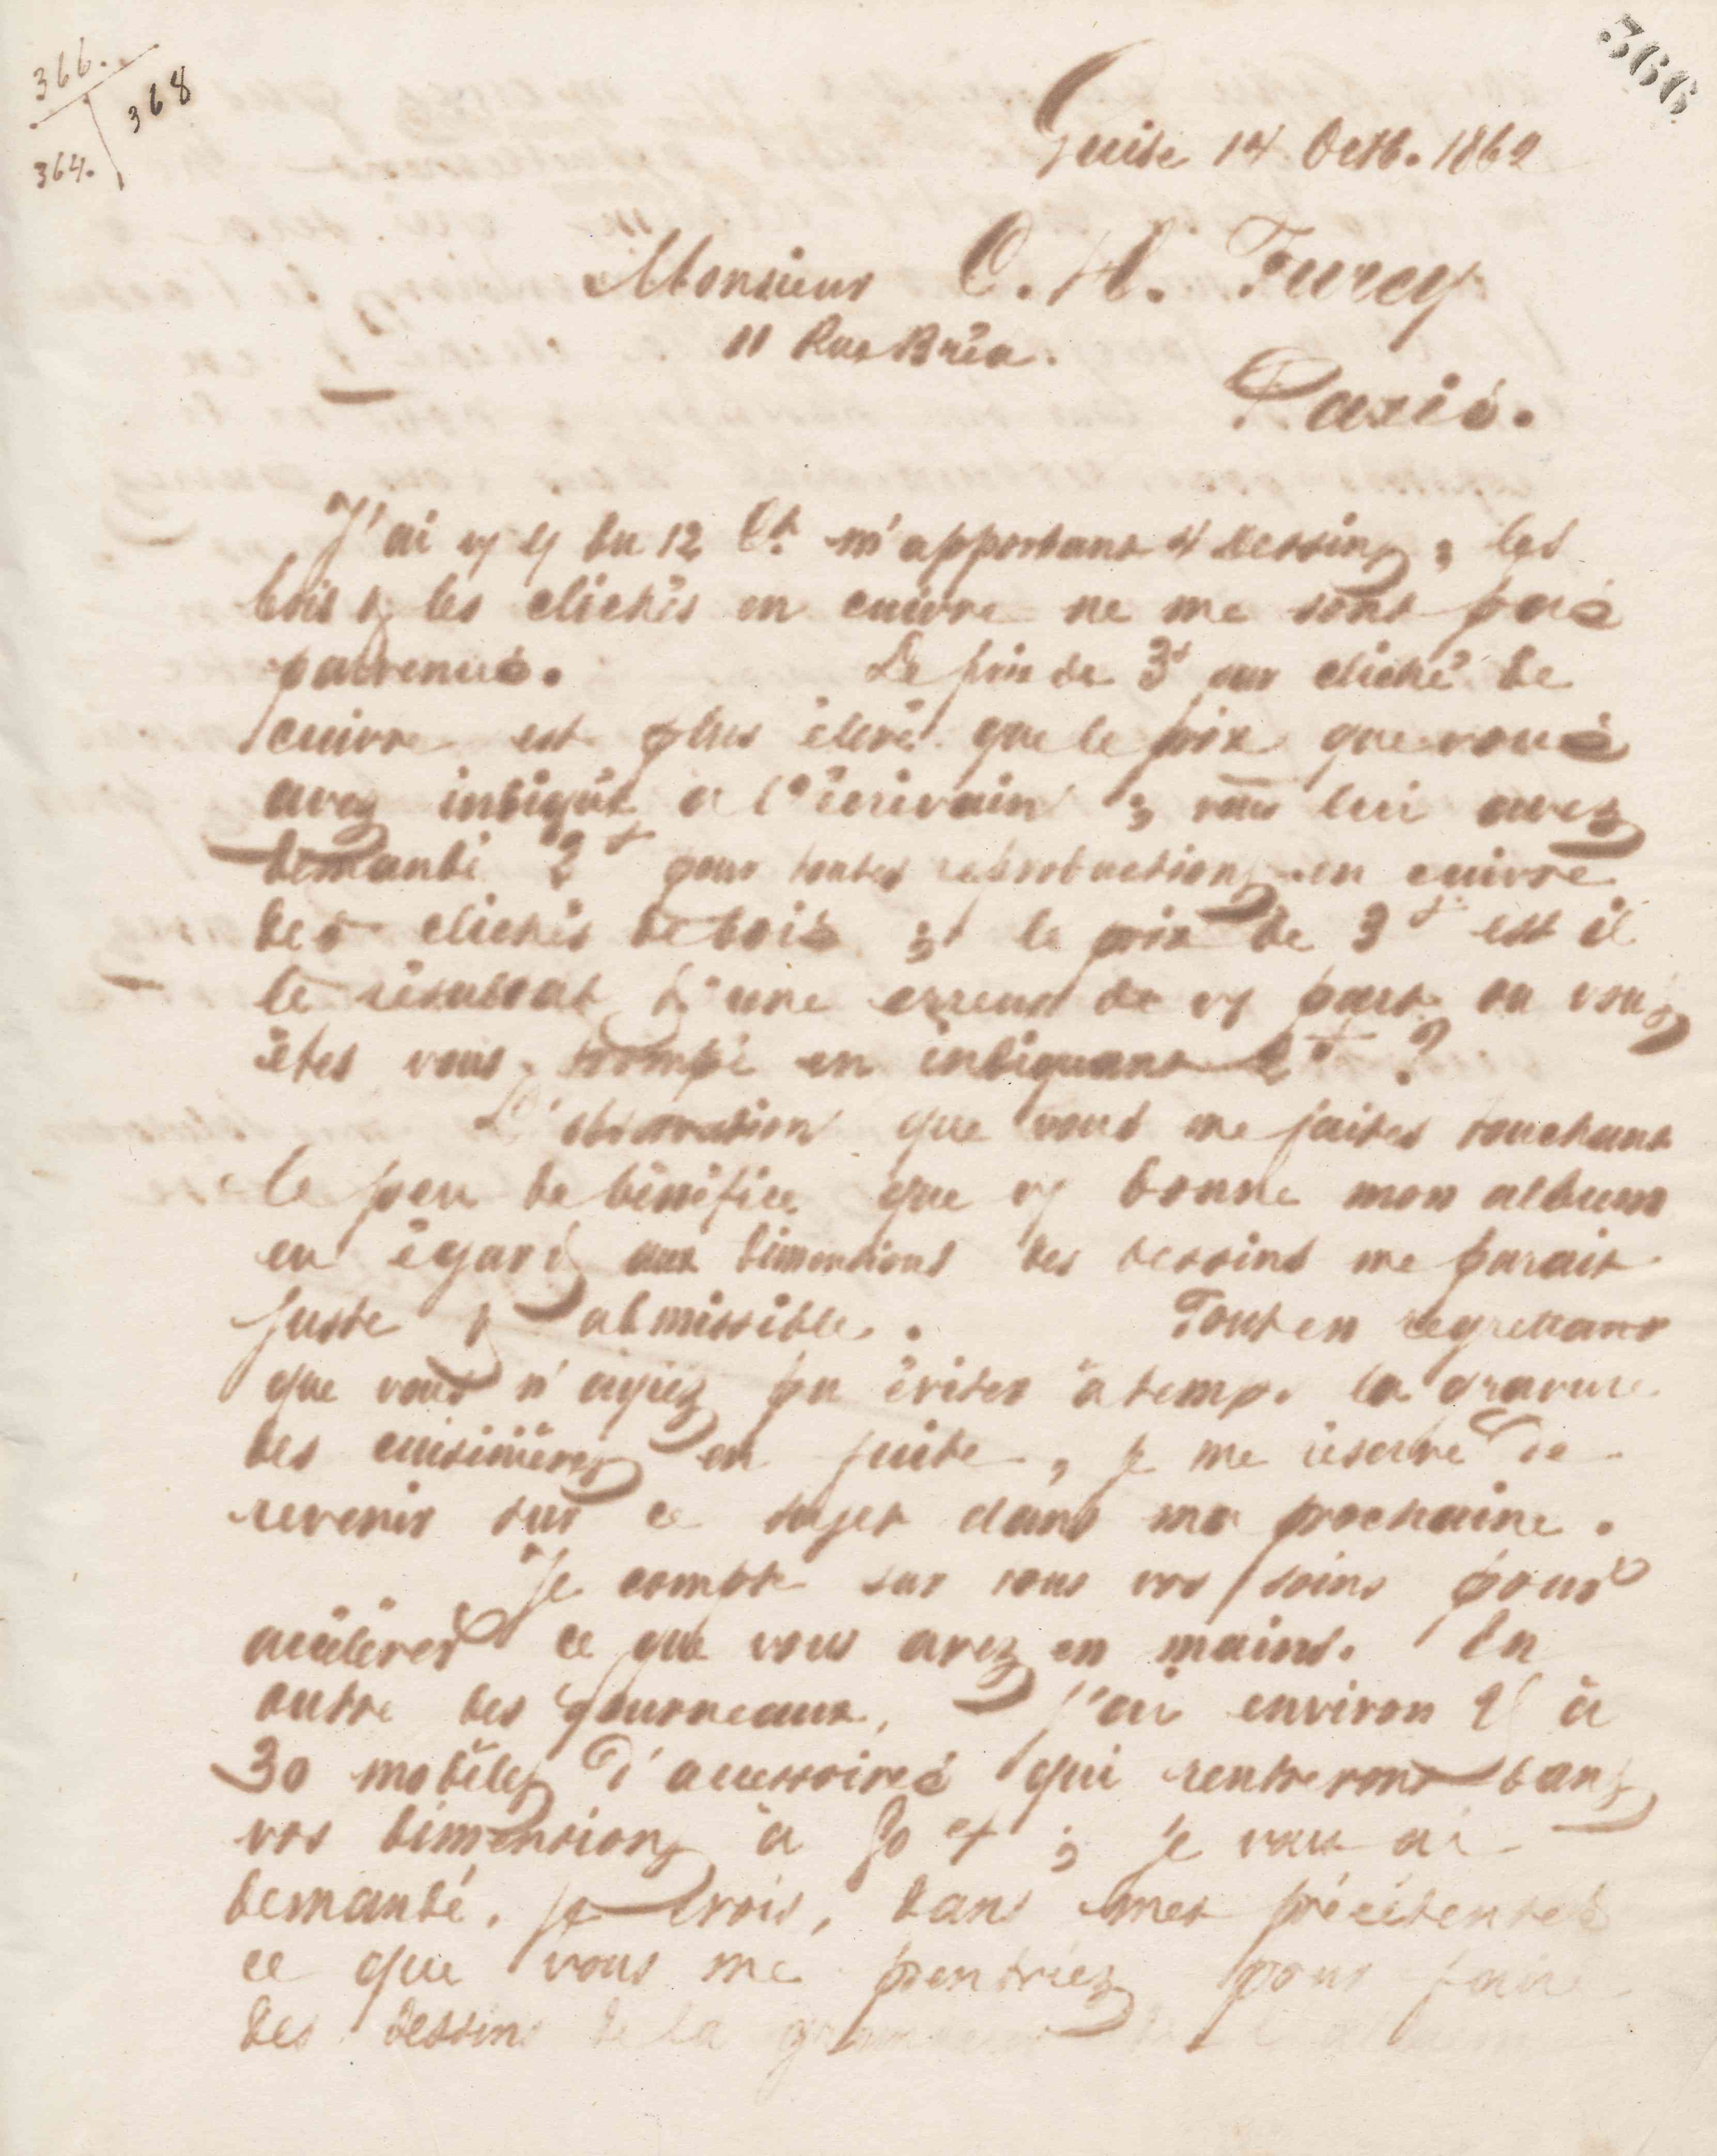 366.
368
364.
366
Guise 14 Octb. 1862
Monsieur C. H. Furcy
11 Rue Bréa.
Paris.
J'ai vy du 12 Ct. m'apportant 4 dessins ; les
bois & les clichés en cuivre ne me sont pas
parvenus. Le prix de 3f par cliché de
cuivre est plus élevé que le prix que vous
avez indiqué a l'écrivain ; vous lui avez
demandé 2f pour toutes reproductions en cuivre
des clichés de bois ; le prix de 3f est il
le résultat d'une erreur de vy part ou vous
êtes vous trompé en indiquant 2f ?
L'observation que vous me faites touchant
le peu de bénéfice que vy donne mon album
eu égard aux dimensions des dessins me parait
juste & admissible. Tout en regrettant
que vous n'ayiez pu éviter à temps la gravure
des cuisinières en fuite, je me réserve de
revenir sur ce sujet dans ma prochaine.
Je compte sur tous vos soins pour
accélérer ce que vous avez en mains. En
outre des fourneaux, j'ai environ 25 à
30 modèles d'accessoires qui rentreront dans
vos dimensions à ; je vous ai
demandé, je crois, dans mes précédentes
ce que vous me prendriez pour faire
des dessins de la grandeur